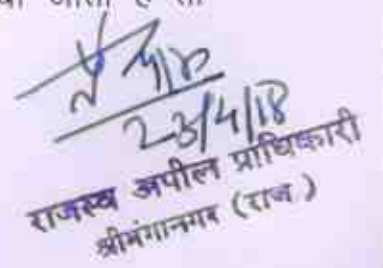 जाता है
23/4/18
राजस्व अपील प्राधिकारी
श्रीगंगानगर (राज.)